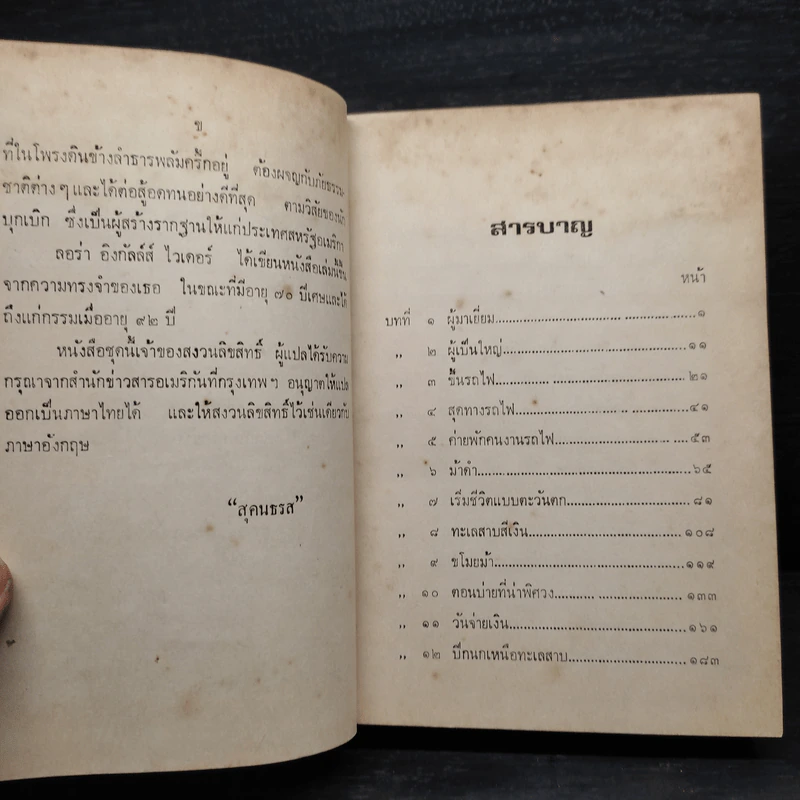 ข
ที่ในโพรงดินข้างลำธารพลัมครี้กอยู่ ต้องผจญกับภัยธรรม-
ชาติต่างๆและได้ต่อสู้อดทนอย่างดีที่สุด ตามวิสัยของนัก
บุกเบิก ซึ่งเป็นผู้สร้างรากฐานให้แก่ประเทศสหรัฐอเมริกา
ลอร่า อิงกัลล์ส์ ไวเดอร์ ได้เขียนหนังสือเล่มนี้ขึ้น
จากความทรงจำของเธอ ในขณะที่มีอายุ ๗๐ ปีเศษและได้
ถึงแก่กรรมเมื่ออายุ ๙๒ ปี
หนังสือชุดนี้เจ้าของสงวนลิขสิทธิ์ ผู้แปลได้รับความ
กรุณาจากสำนักข่าวสารอเมริกันที่กรุงเทพฯ อนุญาตให้แปล
ออกเป็นภาษาไทยได้ และให้สงวนลิขสิทธิ์ไว้เช่นเดียวกับ
ภาษาอังกฤษ
“สุคนธรส”
สารบาญ
หน้า
บทที่ ๑ ผู้มาเยี่ยม ๑
,, ๒ ผู้เป็นใหญ่ ๑๑
,, ๓ ขึ้นรถไฟ ๒๑
,, ๔ สุดทางรถไฟ ๔๑
,, ๕ ค่ายพักคนงานรถไฟ ๕๓
,, ๖ ม้าดำ ๖๕
,, ๗ เริ่มชีวิตแบบตะวันตก ๘๑
,, ๘ ทะเลสาบสีเงิน ๑๐๘
,, ๙ ขโมยม้า ๑๑๙
,, ๑๐ ตอนบ่ายที่น่าพิศวง ๑๓๓
,, ๑๑ วันจ่ายเงิน ๑๖๑
,, ๑๒ ปีกนกเหนือทะเลสาบ ๑๘๓